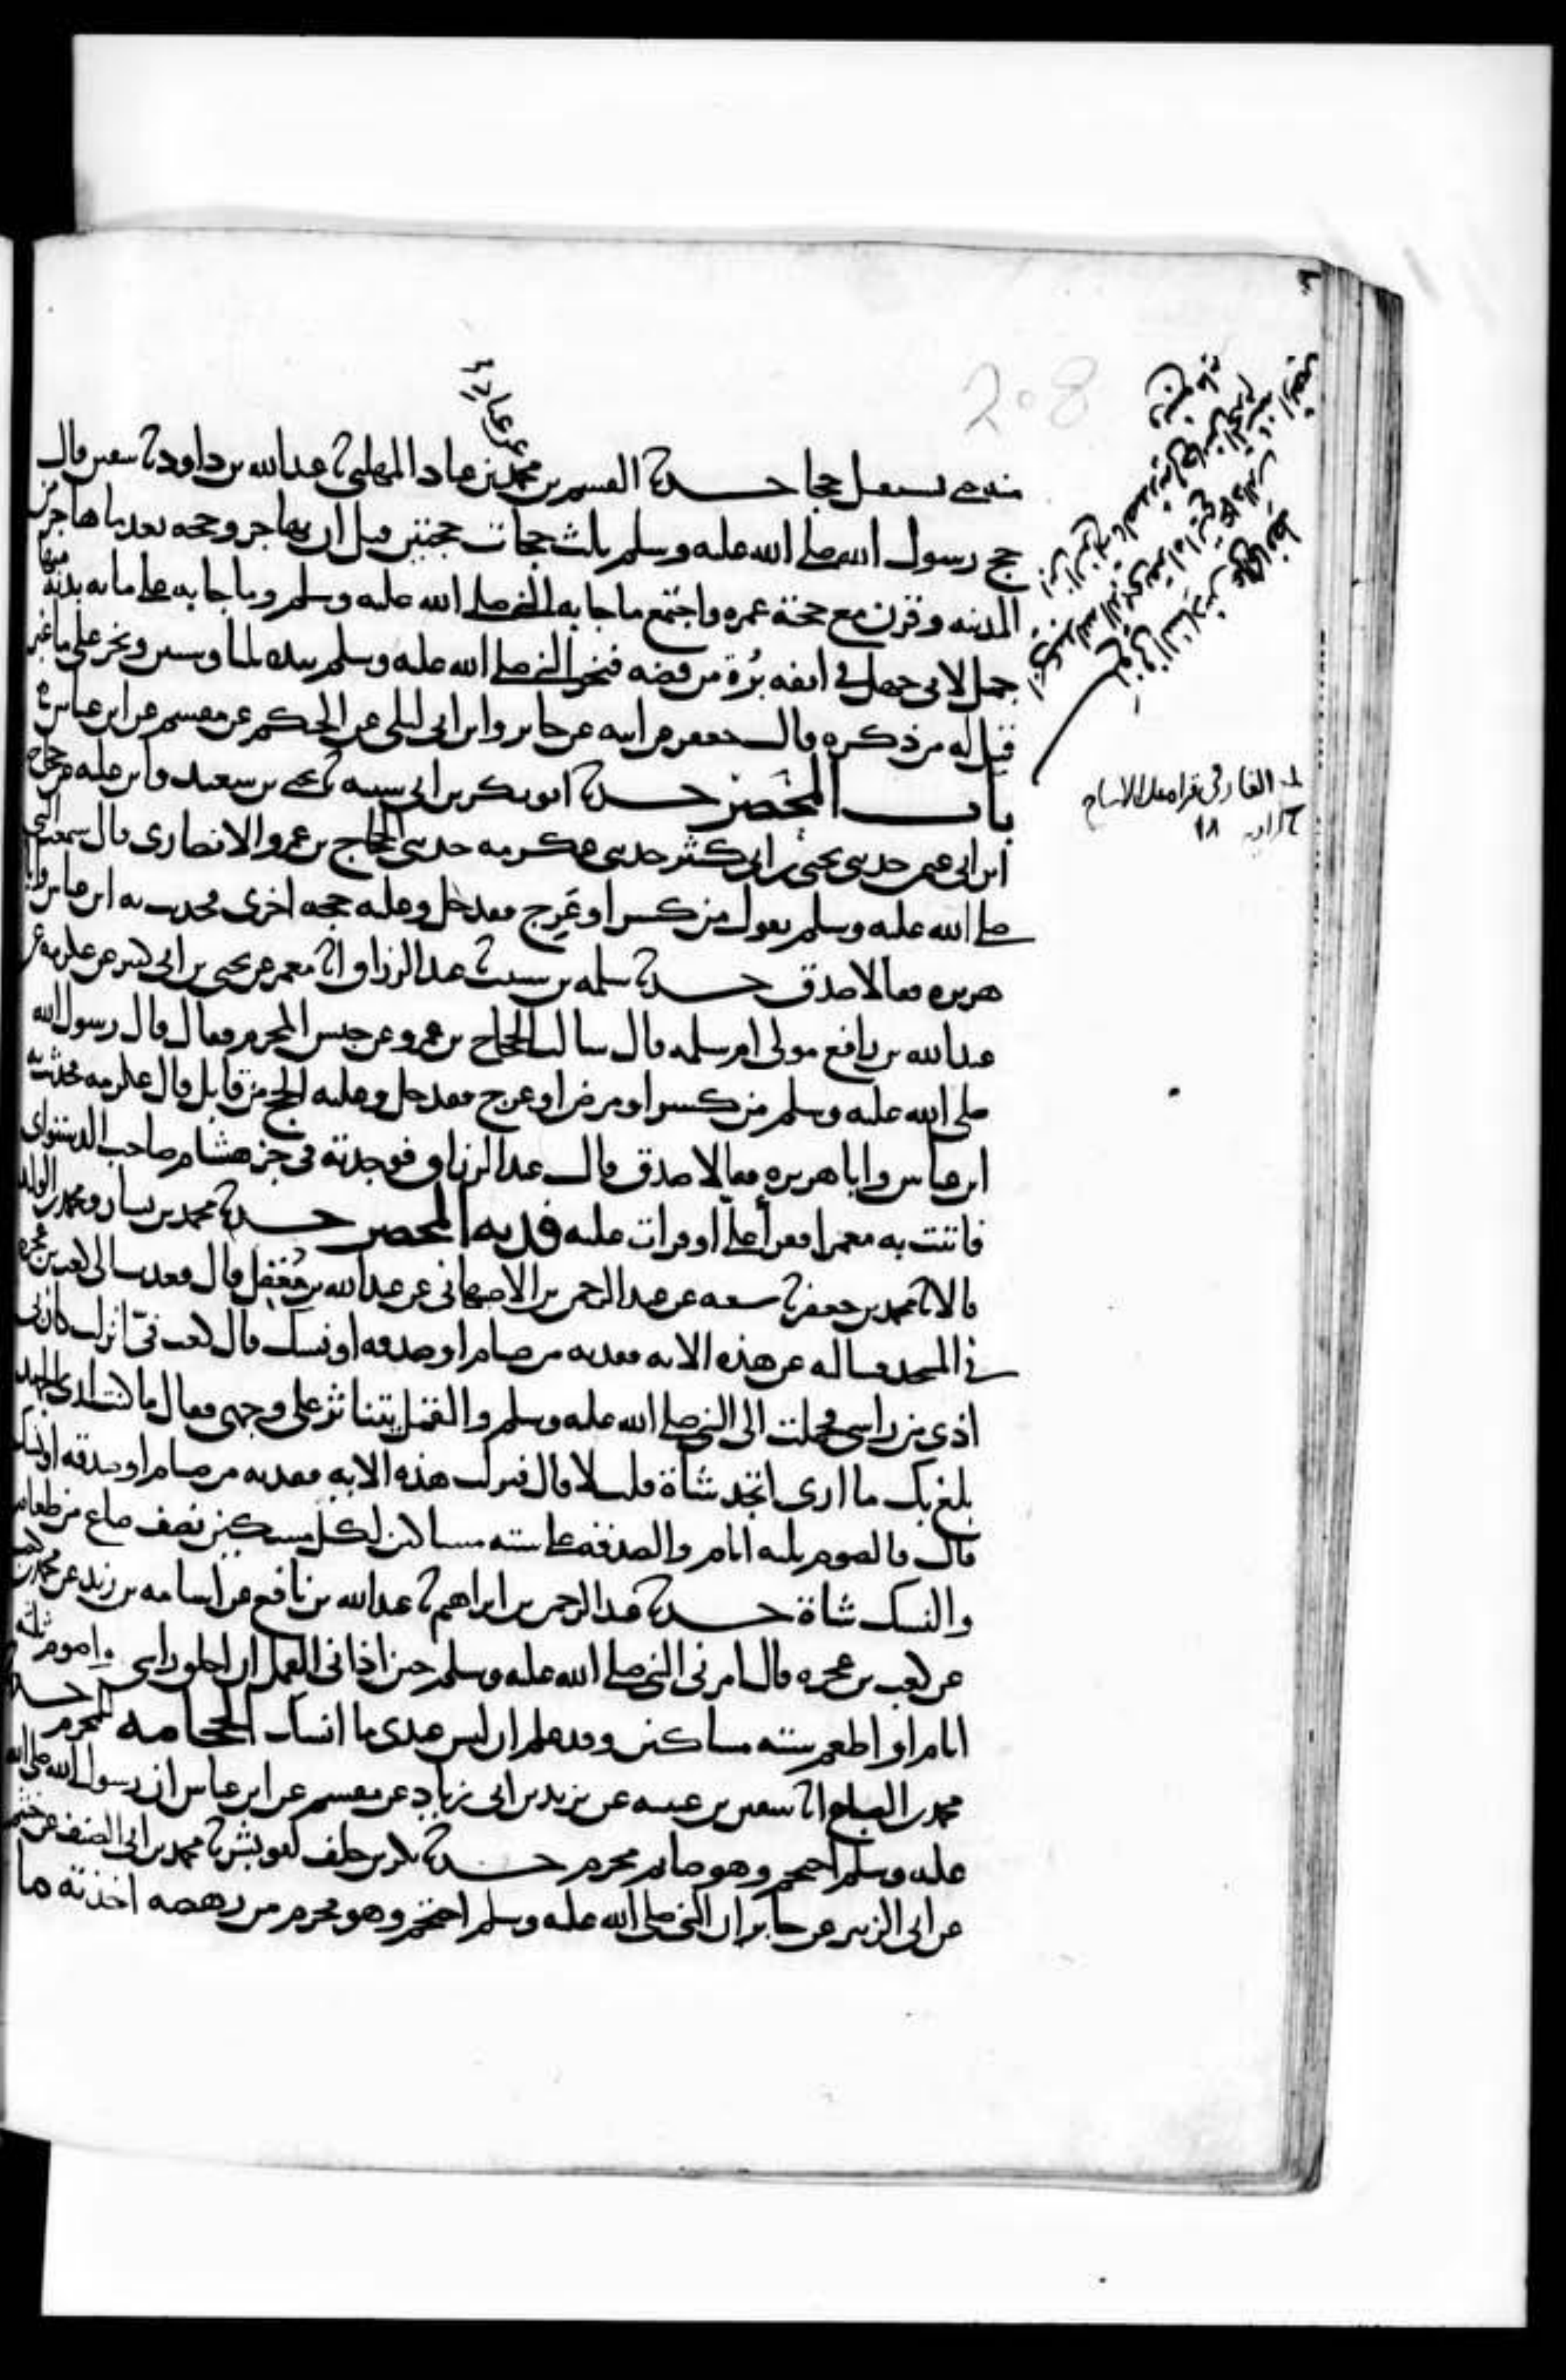 208
منه حتى يستعمل حجا حدثنا القسم بن محمد بن عباد المهلبي ثنا عبدالله بن داود ثنا سفين قال
حج رسول الله صلى الله عليه وسلم ثلث حجات حجتين قبل ان يهاجر وحجه بعد ما هاجر من
المدينه وقرن مع حجته عمره واجتمع ما جا به النبي صلى الله عليه وسلم وما جا به علي مايه بدنة منها
جمل لابي جهل في انفه بُرة من فضه فنحر النبي صلى الله عليه وسلم بيده ثلثا وستين ونحر علي ما غبر
قيل له من ذكره قال جعفر عن ابيه عن جابر وابن ابي ليلى عن الحكم عن مقسم عن ابن عباس
باب المحصر حدثنا ابو بكر بن ابي شيبه ثنا يحيى بن سعيد وابن عليه عن حجاج
ابن ابي عثمن حدثني يحيى بن ابي كثير حدثني عكرمه حدثني الحجاج بن عمرو الانصاري قال سمعت النبي
صلى الله عليه وسلم يقول من كسر او عَرِج فقد حل وعليه حجه اخرى فحدثت به ابن عباس وابا
هريره فقالا صدق حدثنا سلمه بن شبيب ثنا عبد الرزاق انا معمر عن يحيى بن ابي كثير عن عكرمه عن
عبدالله بن رافع مولى ام سلمه قال سالت الحجاج بن عمرو عن حبس المحرم فقال قال رسول الله
صلى الله عليه وسلم من كسر او مرض او عرج فقد حل وعليه الحج من قابل قال عكرمه فحدثت به
ابن عباس وابا هريره فقالا صدق قال عبد الرزاق فوجدته في جز هشام صاحب الدستواي
فاتيت به معمرا فقرأ علي او قرات عليه فديه المحصر حدثنا محمد بن بشار ومحمد بن الوليد
قالا ثنا محمد بن جعفر ثنا شعبه عن عبد الرحمن بن الاصبهاني عن عبدالله بن مُعَقِل قال قعدت الى كعب بن عجره
في المسجد فسالته عن هذه الايه ففديه من صيام او صدقه او نسك قال كعب فيّ انزلت كان بي
اذى من راسي فحملت الى النبي صلى الله عليه وسلم والقمل يتناثر على وجهي فقال ما كنت ارى الجهد
بلغ بك ما ارى اتجد شاة قلت لا قال فنزلت هذه الايه ففديه من صيام او صدقه او نسك
قال فالصوم ثلثه ايام والصدقة على سته مساكين لكل مسكين نصف صاع من طعام
والنسك شاة حدثنا عبد الرحمن بن ابراهيم ثنا عبدالله بن نافع عن اسامه بن زيد عن محمد بن كعب
عن كعب بن عجره قال امرني النبي صلى الله عليه وسلم حين اذاني القمل ان احلق راسي واصوم ثلثه
ايام او اطعم سته مساكين وقد علم ان ليس عندي ما انسك الحجامه للمحرم حدثنا
محمد بن الصباح انا سفين بن عيينه عن يزيد بن ابي زياد عن مقسم عن ابن عباس ان رسول الله صلى الله
عليه وسلم احتجم وهو صايم محرم حدثنا بكر بن خلف ابو بشر ثنا محمد بن ابي الضيف عن ابن خثيم
عن ابي الزبير عن جابر ان النبي صلى الله عليه وسلم احتجم وهو محرم من رهصه اخذته ما